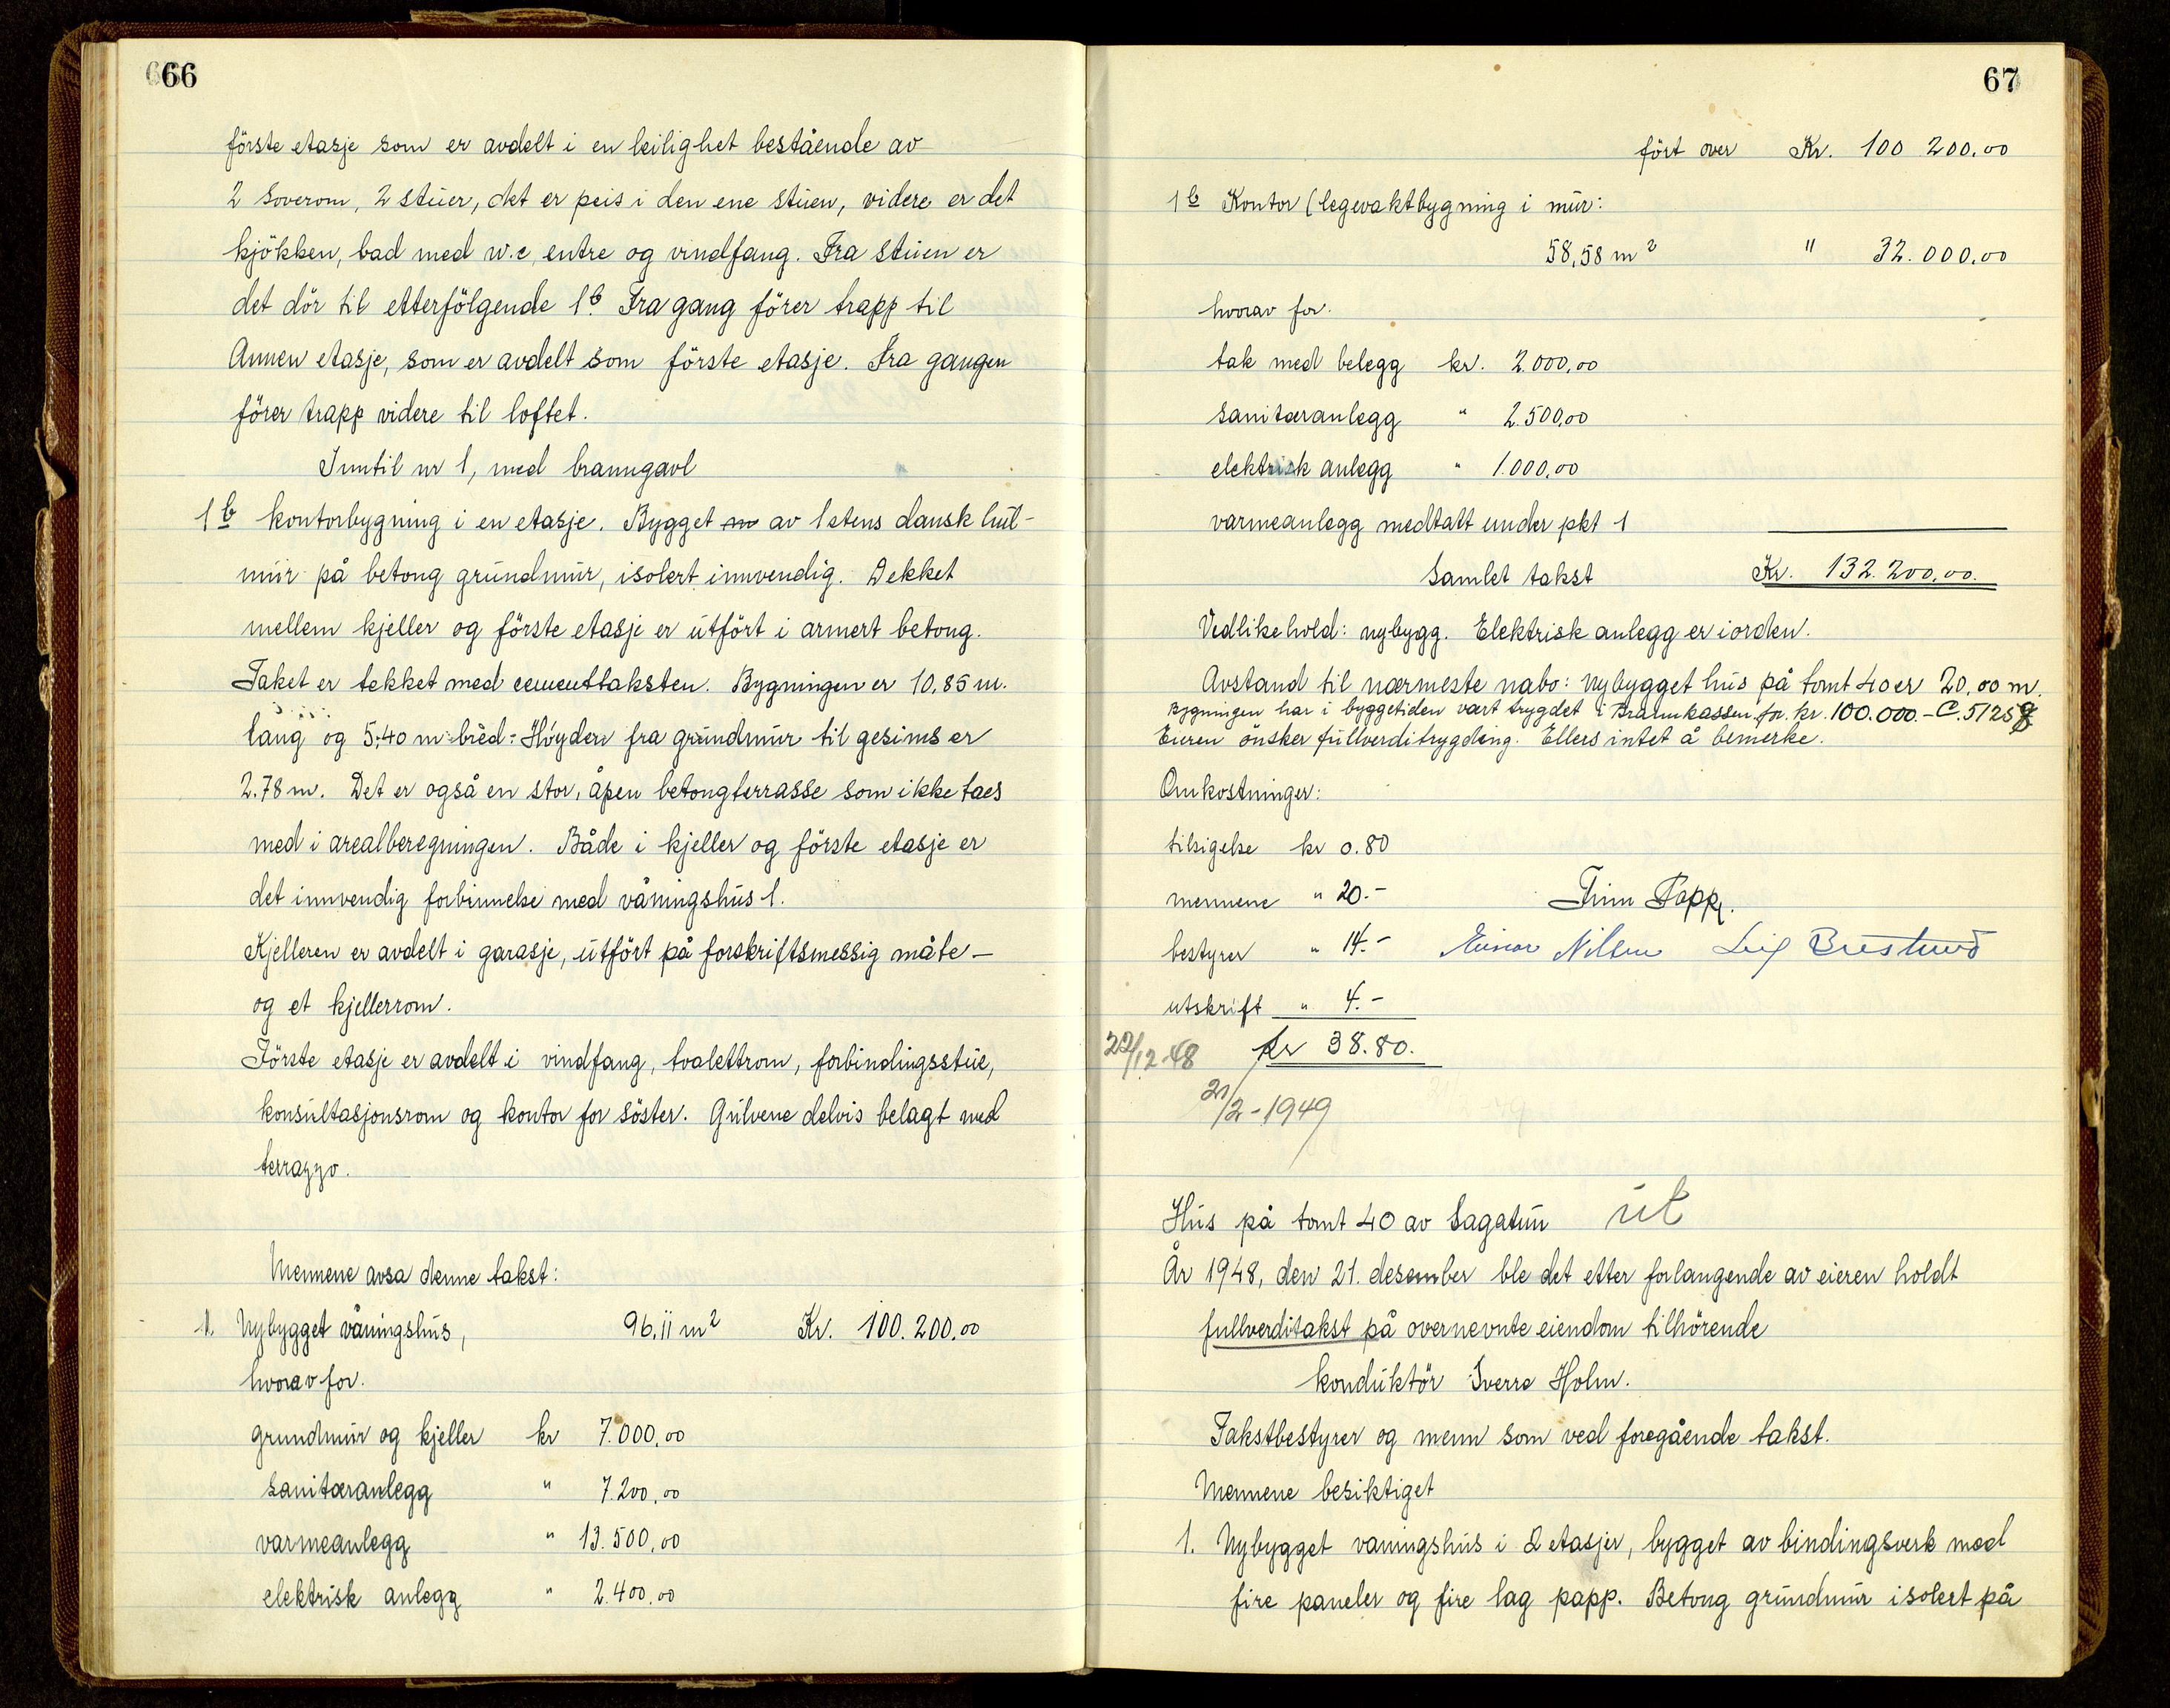 66
förste etasje som er avdelt i en leilighet bestående av
2 soverom, 2 stuer, det er peis i den ene stuen, videre er det
kjökken, bad med w.c, entre og vindfang. Fra stuen er
det dör til etterfölgende 1b Fra gang förer trapp til
Annen etasje, som er avdelt som förste etasje. Fra gangen
förer trapp videre til loftet.
Inntil nr 1, med branngavl
1b kontorbygning i en etasje. Bygget av 1 stens dansk hul-
mur på betong grundmur, isolert innvendig. Dekket
mellem kjeller og förste etasje er utfört i armert betong.
Taket er tekket med cementtaksten. Bygningen er 10,85 m.
lang og 5,40 m bred. Höyden fra grundmur til gesims er
2.78 m. Det er også en stor, åpen betongterrasse som ikke taes
med i arealberegningen. Både i kjeller og förste etasje er
det innvendig forbinnelse med våningshus 1.
Kjelleren er avdelt i garasje, utfört på forskriftsmessig måte –
og et kjellerrom.
Förste etasje er avdelt i vindfang, toalettrom, forbindingsstue,
konsultasjonsrom og kontor for söster. Gulvene delvis belagt med
terrazzo.
Mennene avsa denne takst:
1. Nybygget våningshus, 96,11 m2 Kr. 100.200,00
hvorav for.
grundmur og kjeller kr 7.000,00
sanitæranlegg " 7.200,00
varmeanlegg " 13.500,00
elektrisk anlegg " 2.400,00
67
fört over Kr. 100 200,00
1b Kontor (legevaktbygning i mur:
58,58 m2 " 32.000,00
hvorav for.
tak med belegg kr. 2.000,00
sanitæranlegg " 2.500,00
elektrisk anlegg " 1.000,00
varmeanlegg medtatt under pkt 1
Samlet takst Kr. 132.200,00.
Vedlikehold: nybygg. Elektrisk anlegg er i orden.
Avstand til nærmeste nabo: Nybygget hus på tomt 40 er 20,00 m.
Bygningen har i byggetiden vært trygdet i Brannkassen for kr. 100.000.– C.51258
Eieren önsker fullverditrygding. Ellers intet å bemerke.
Omkostninger:
tilsigelse kr 0.80
mennene " 20.–
Finn Papp.
bestyrer " 14.– Einar Nilsen Leif
utskrift " 4.–
22/12 48 kr 38.80.
21/2-1949
Hus på tomt 40 av Sagatun ut
År 1948, den 21. desember ble det etter forlangende av eieren holdt
fullverditakst på overnevnte eiendom tilhörende
konduktör Sverre Holm.
Takstbestyrer og menn som ved foregående takst.
Mennene besiktiget
1. Nybygget våningshus i 2 etasjer, bygget av bindingsverk med
fire paneler og fire lag papp. Betong grundmur isolert på